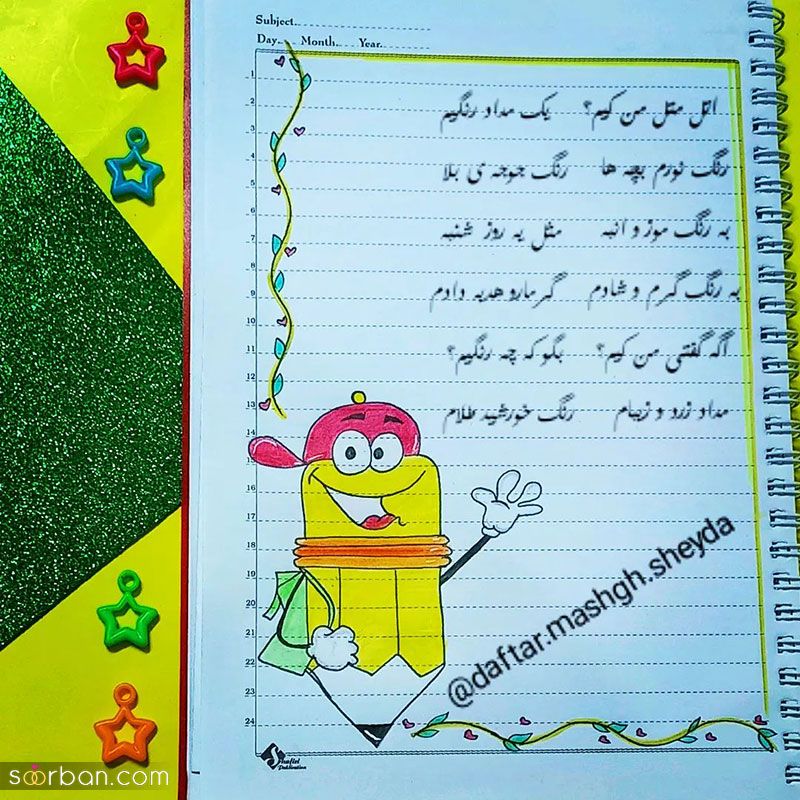 Subject
Day Month Year
1
2
3
4
5
6
7
8
9
10
11
12
13
14
15
16
17
18
19
20
21
22
23
24
اتل متل من کیم؟ یک مداد رنگیم
رنگ تورم بچه ها رنگ جوجه ی بلا
به رنگ موز و انبه مثل یه روز شنبه
به رنگ گرم و شادم گرمارو هدیه دادم
اگه گفتی من کیم؟ بگو که چه رنگیم؟
مداد زرد و زیبام رنگ خورشید طلام
@daftar.mashgh.sheyda
Shaftel
Publication
soorban.com